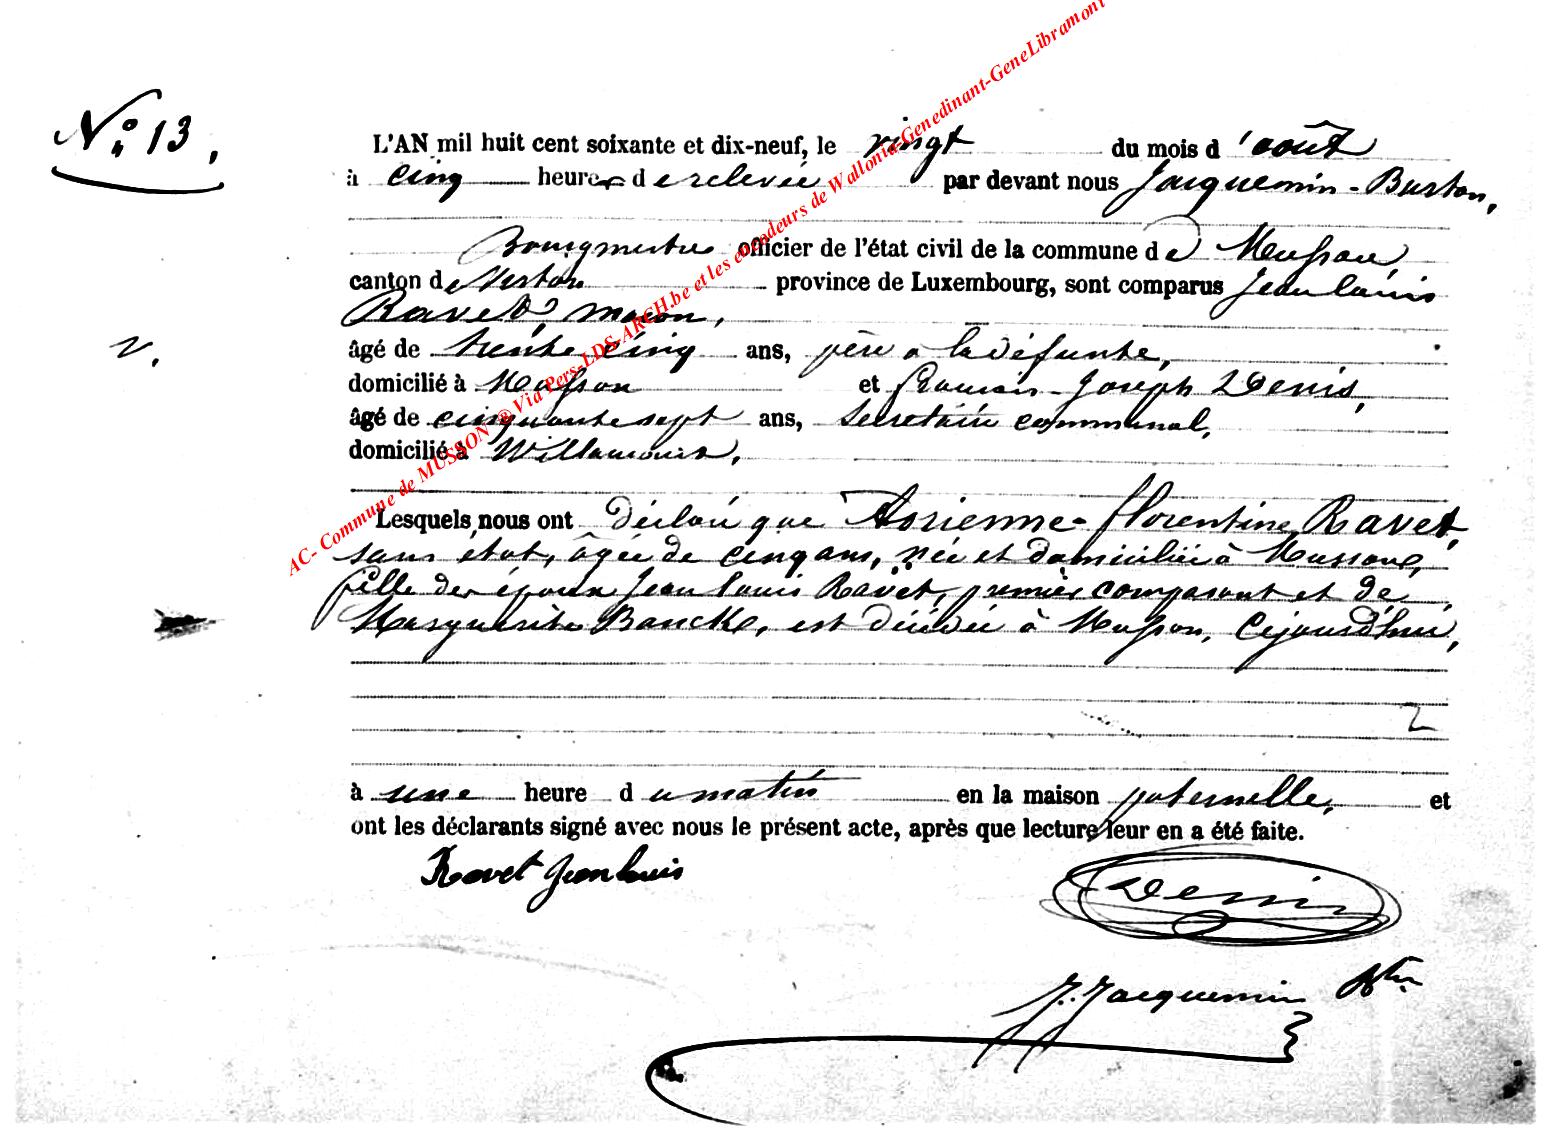 N° 13.
L'AN mil huit cent soixante et dix-neuf, le vingt du mois d'août
à cinq heures de relevée par devant nous Jacquemin-Burton,
Bourgmestre officier de l'état civil de la commune de Musson,
canton de Virton province de Luxembourg, sont comparus Jean louis
Ravet, maçon,
V.
âgé de trente cinq ans, père à la défunte,
domicilié à Musson et Joseph Denis,
âgé de cinquante sept ans, Secrétaire communal,
domicilié à Willancourt,
Lesquels nous ont déclaré que Florentine Ravet,
sans état, âgée de cinq ans, née et domiciliée à Musson,
fille des époux Jean louis Ravet, premier comparant et de
Marguerite Banck, est décédée à Musson, cejourd'hui,
à une heure du matin en la maison paternelle, et
ont les déclarants signé avec nous le présent acte, après que lecture leur en a été faite.
Ravet Jean louis
Denis
J. Jacquemin Btn
AC- Commune de MUSSON ® Via Pers-LDS-ARCH.be et les encodeurs de Wallonia-Genedinant-GeneLibramont